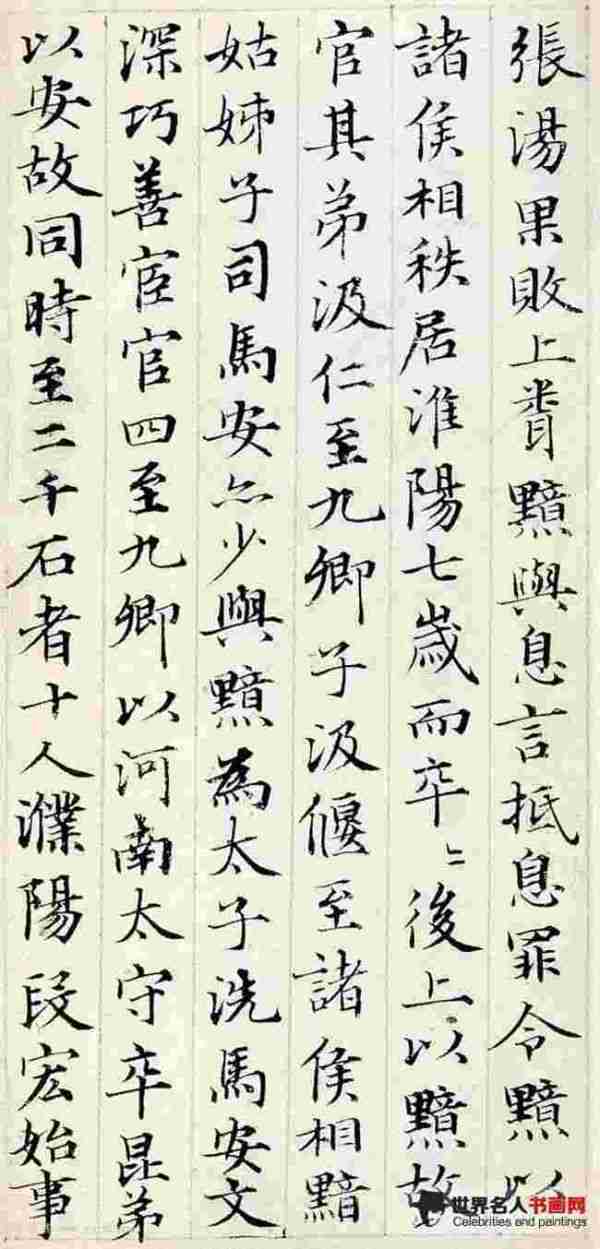 張湯果敗上聞黯與息言抵息罪令黯以
諸侯相秩居淮陽七歲而卒〻後上以黯故
官其弟汲仁至九卿子汲偃至諸侯相黯
姑姊子司馬安亦少與黯為太子洗馬安文
深巧善宦官四至九卿以河南太守卒昆弟
以安故同時至二千石者十人濮陽段宏始事
世界名人书画网
Celebrities and paintings